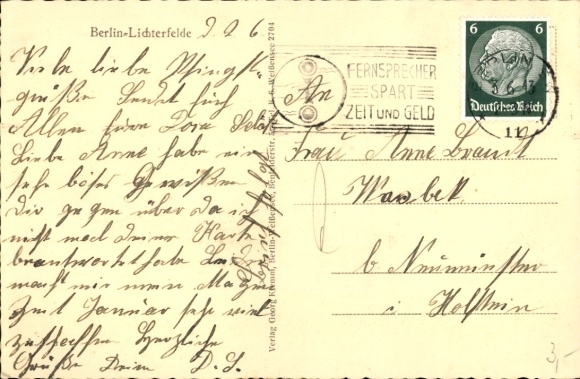 Berlin-Lichterfelde 2 2 6
Viele liebe Pfingst-
grüße sendet Euch
Allen Eure Dora
Liebe Anne habe ein
sehr böses Gewißen
Dir gegen über da ich
nicht mal deine Karte
beantwortet habe Leider
macht mir mein Magen
seit Januar sehr viel
zu schaffen Herzliche
Grüße Deine D. S.
Brief folgt
Verlag Georg Krüger, Berlin-Weißensee, Weißensee 2704
FERNSPRECHER
SPART
ZEIT UND GELD
BERLIN
6 6
Deutsches Reich
An
Frau Anne Brandt
Wasbek
b. Neumünster
i. Holstein
3,-